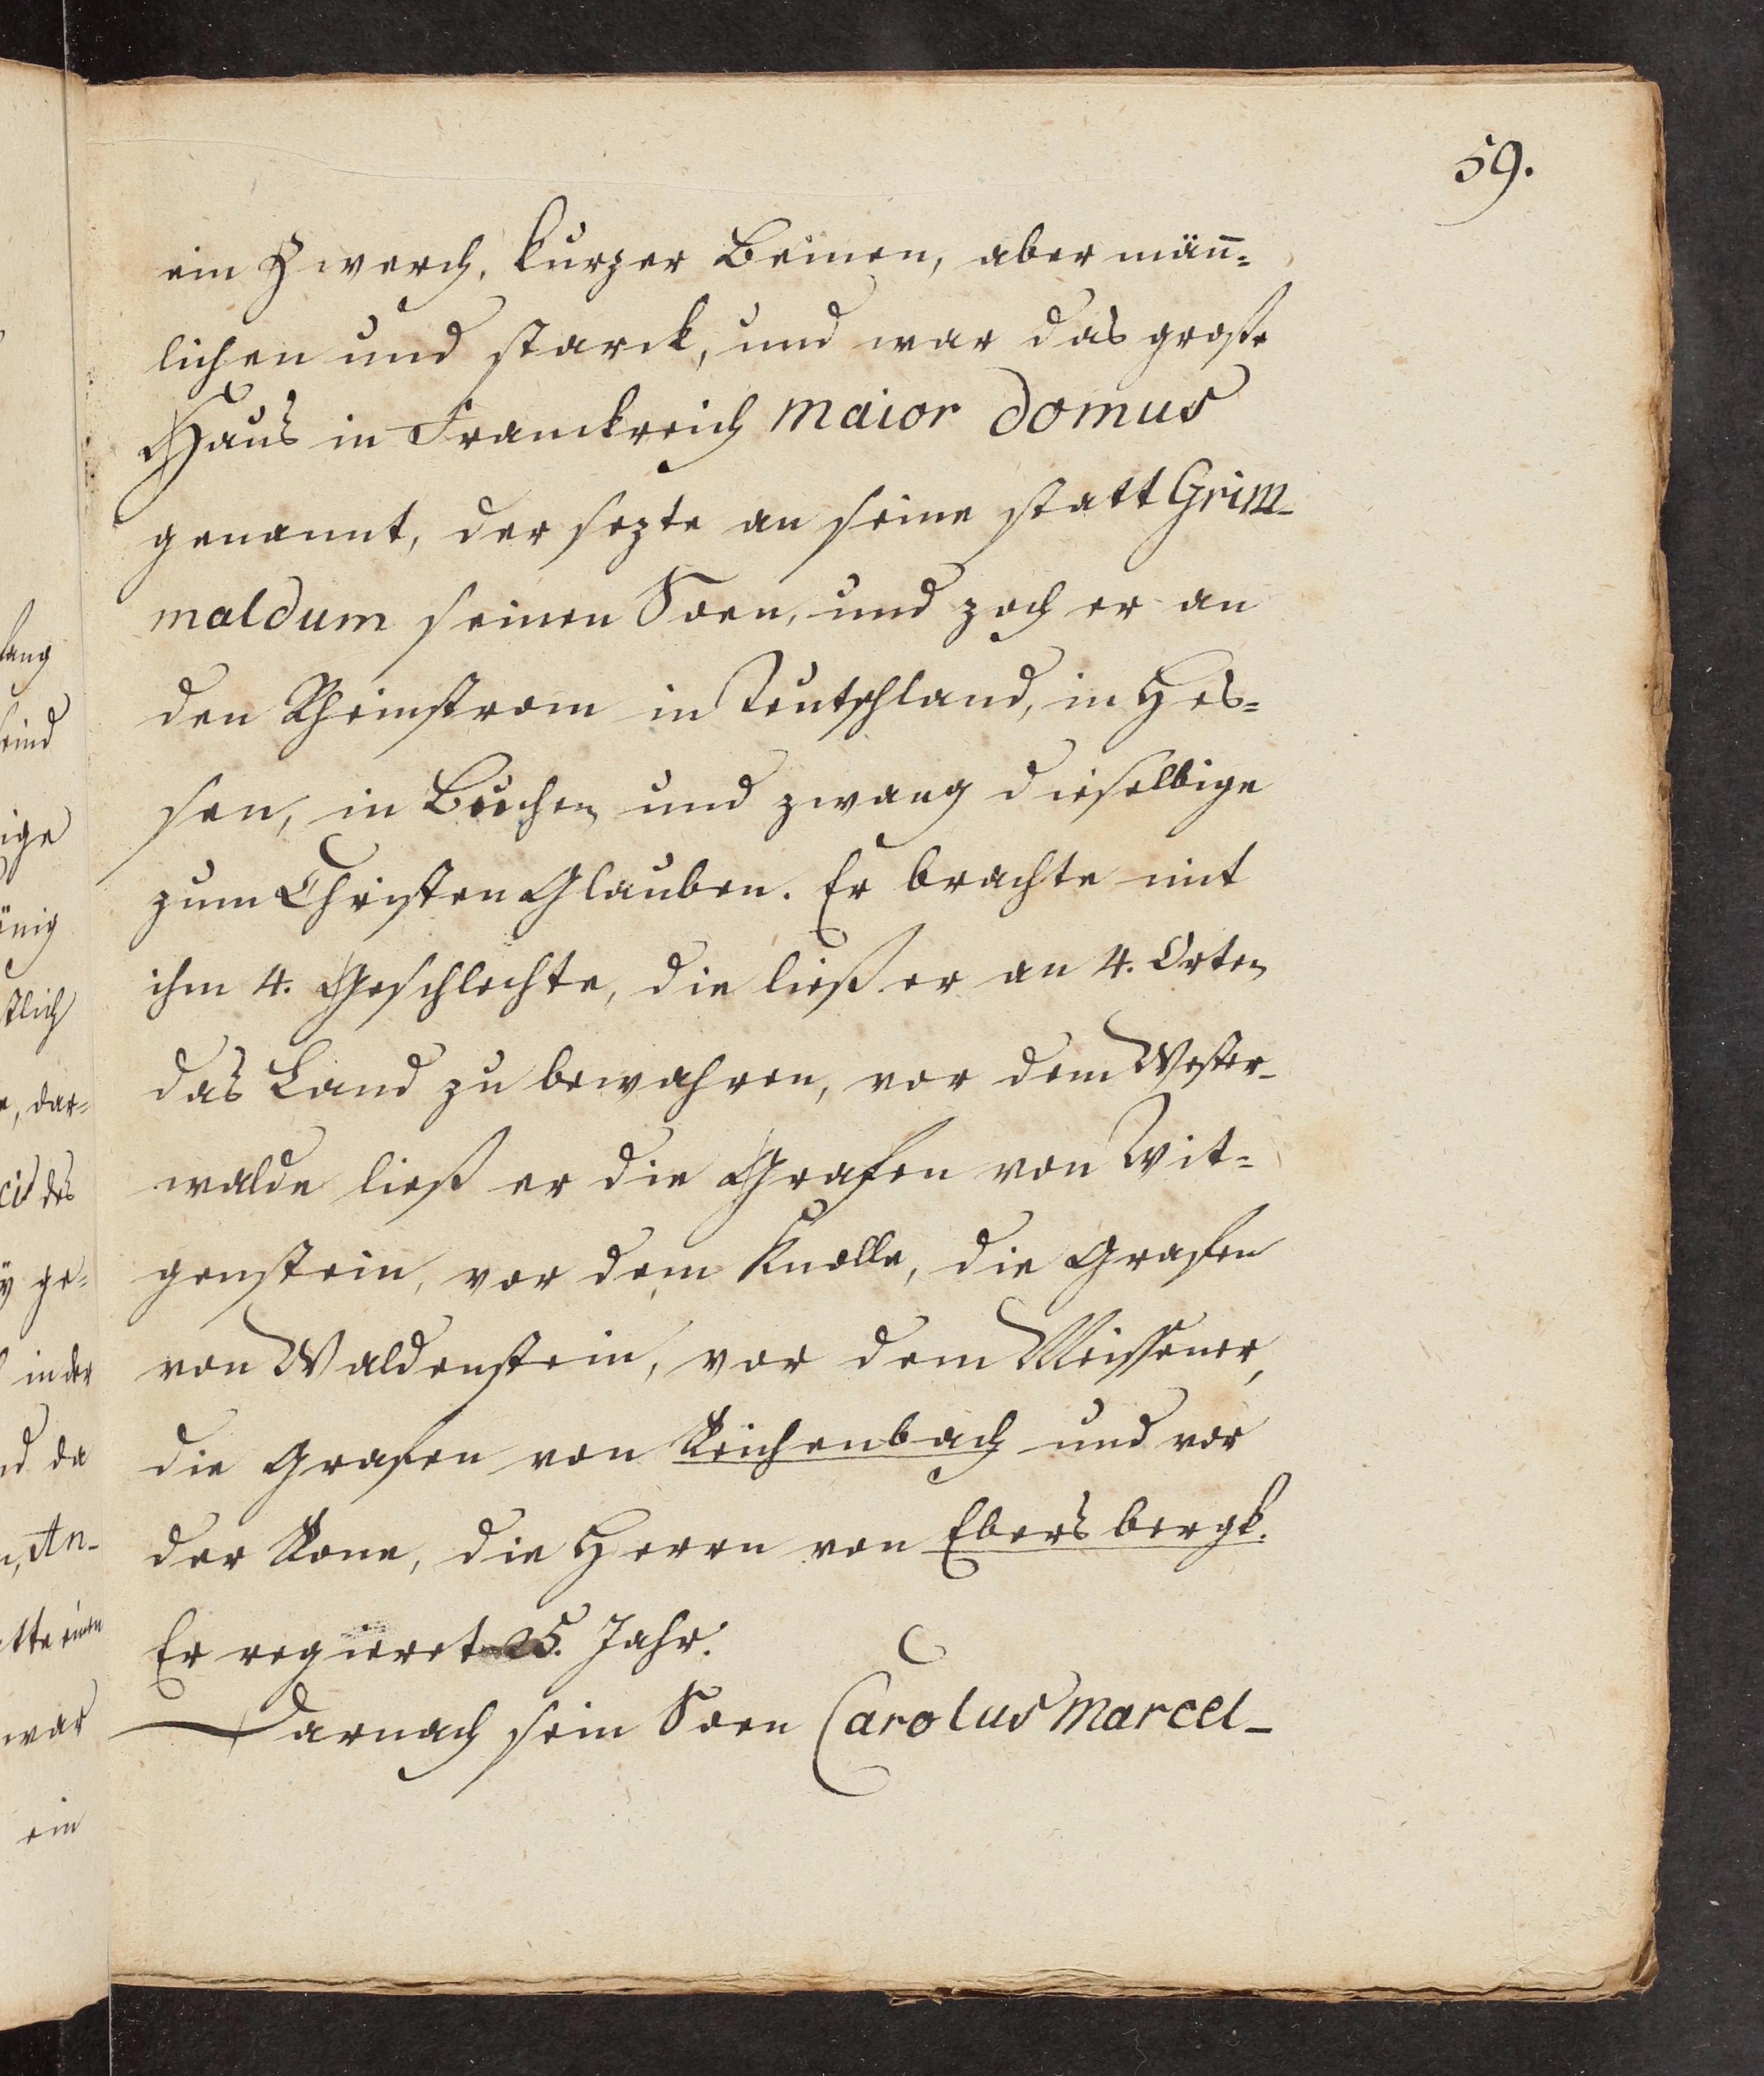 59.
ein Zwerch, kurzer Beinen, aber män̄=
lichen und starck, und war das große
Haus in Franckreich maior domus
genannt, der sezte an seine statt Grim-
maldum seinen Soen, und zoch er an
den Rheinstrom in Teutschland, in Hes=
sen, in Buchen und zwang dieselbige
zum Christen Glauben. Er brachte mit
ihm 4. Geschlechte, die ließ er an 4. Orten
das Land zu bewahren, vor dem Wester-
walde ließ er die Grafen von Wit=
genstein, vor dem Knolle, die Grafen
von Waldenstein, vor dem Meissener,
die Grafen von Reichenbach und vor
der Rone, die Herrn von Ebersbergk.
Er regieret 25. Jahr.
Darnach sein Soen Carolus Marcel-
lang
seind
ige
änig
stlich
e, dar=
cis des
ÿ ge=
in der
nd da
n, An-
atte einen
war
ein